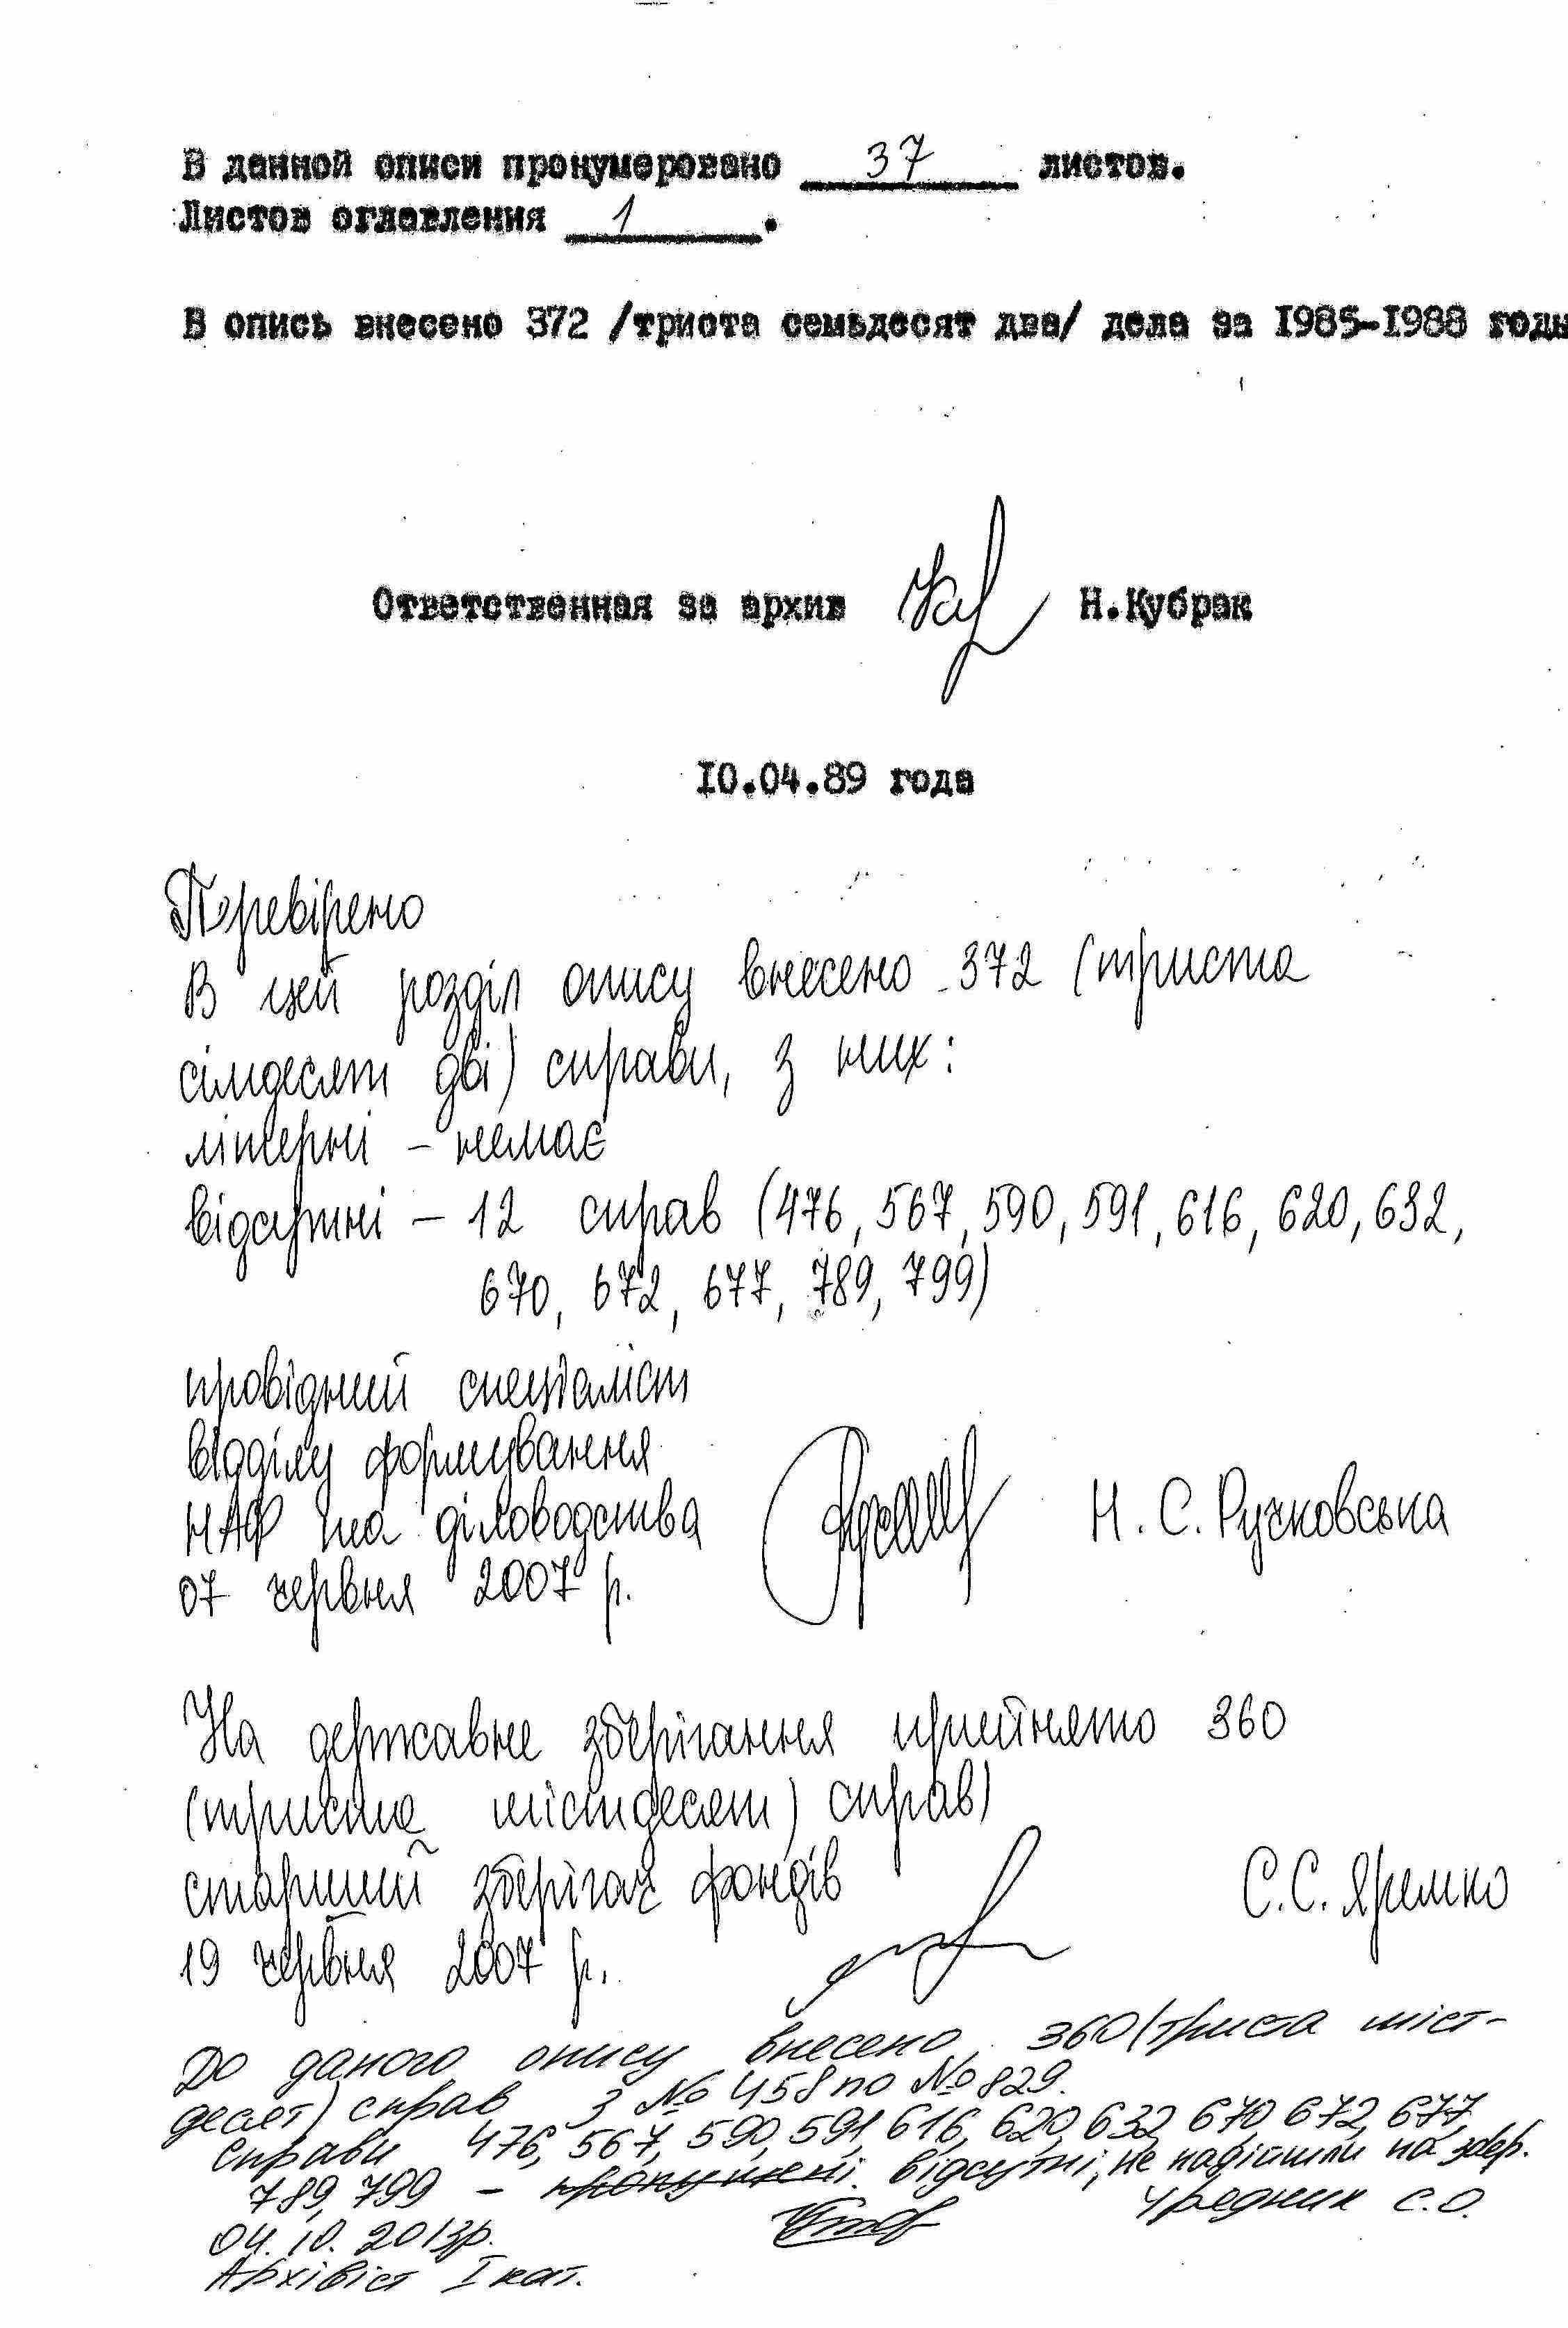 В данной описи пронумеровано 37 листов.
Листов оглавления 1.
В опись внесено 372 /триста семьдесят два/ дела за 1985-1988 годы
Ответственная за архив Н.Кубрак
10.04.89 года
Перевірено
В цей розділ опису внесено 372 (триста
сімдесят дві) справи, з них:
літерні - немає
відсутні - 12 справ (476, 567, 590, 591, 616, 620, 632,
670, 672, 677, 789, 799)
провідний спеціаліст
відділу формування
НАФ та діловодства Н. С. Ручковська
07 червня 2007 р.
На державне зберігання прийнято 360
(триста шістдесят) справ)
старший зберігач фондів С.С. Яремко
19 червня 2007 р.
До даного опису внесено 360 (триста шіст-
десят) справ з № 458 по № 829.
Справи 476, 567, 590, 591, 616, 620, 632, 670, 672, 677,
789, 799 - пропущені. відсутні, не надійшли на збер.
04.10.2013р. Чредник С.О.
Архівіст І кат.